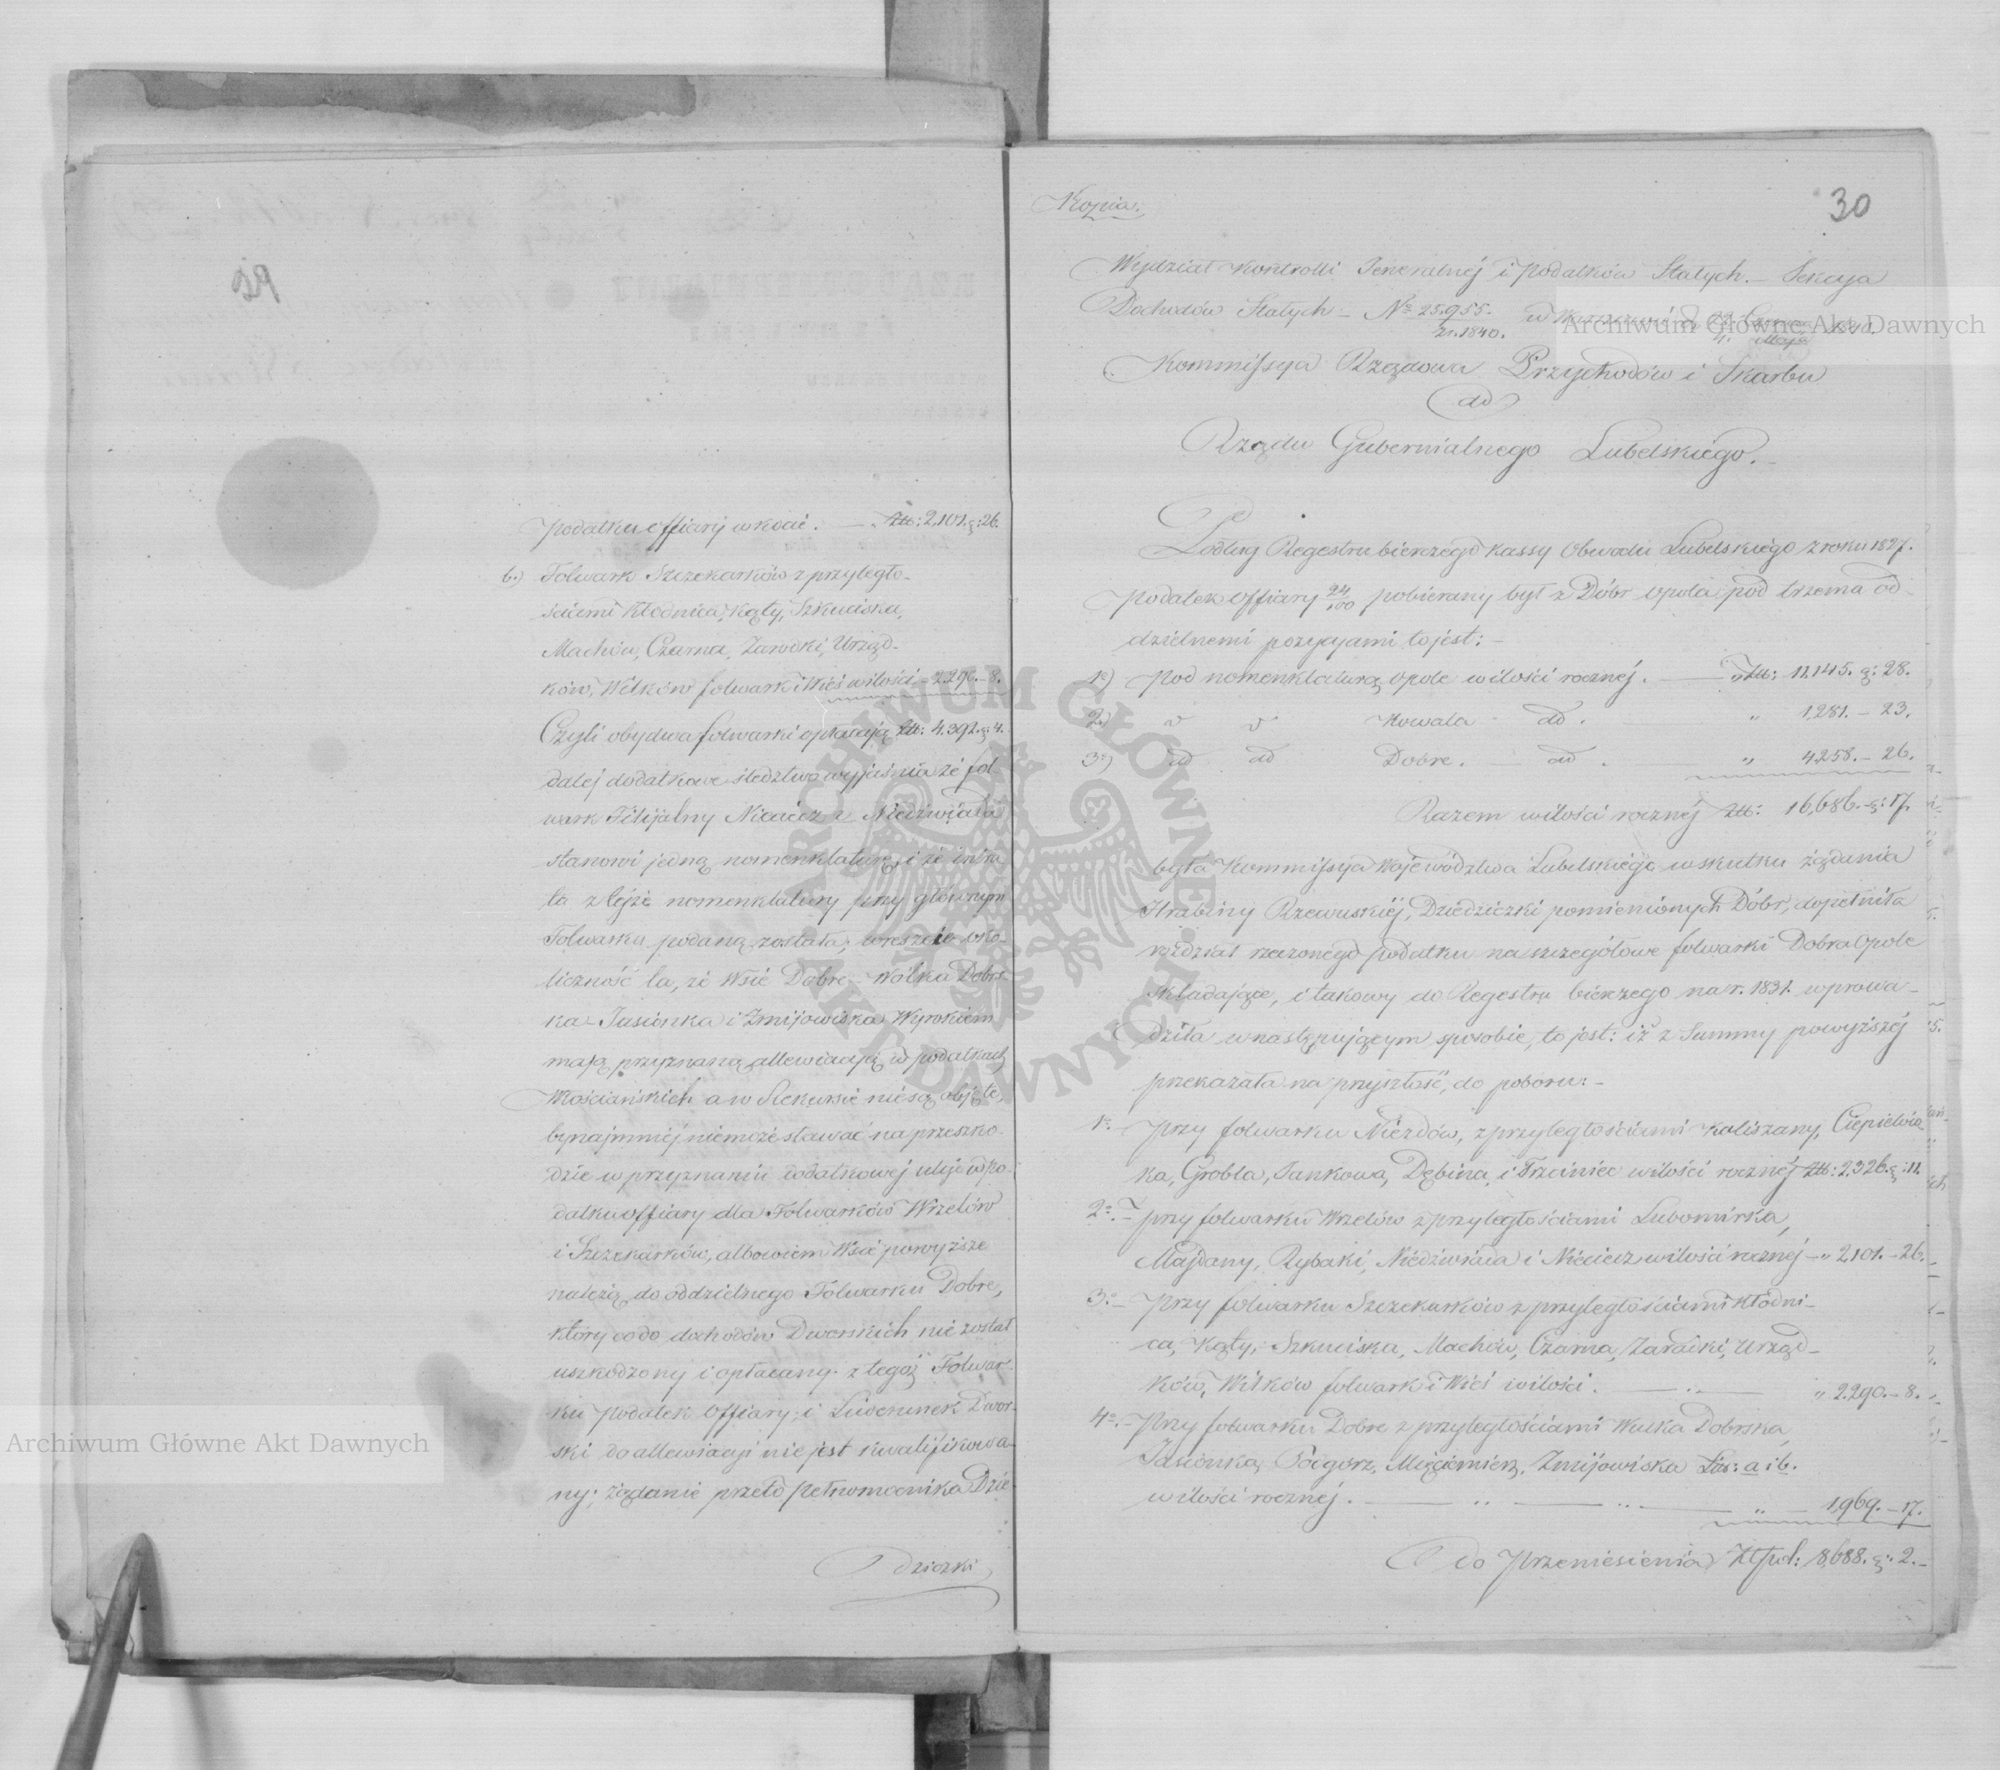 podatku offiary w kocie. — „ Złt: 2,101. g: 26.
b.) Folwark Szczekarków z przyległo-
ściami Kłodnica, Kąty, Szkuciska,
Machów, Czarna, Zaroski, Urząd-
ków, Wilków folwark i Wieś w ilości – 2,290. – 8.
Czyli obydwa folwarki opłacają Złt: 4.392. g: 4.
dalej dodatkowe śledztwo wyjaśnia że fol-
wark Filijalny Niecicz z Niedzwiada
stanowi jedną nomenklaturę, i że intra-
ta z tejże nomenklatury przy głównym
Folwarku podaną została; wreszcie oko-
liczność ta, że Wsie Dobre – Wólka Dobrs-
ka – Jasionka i Zmijowiska Wyrokiem
mają przyznaną allewiacyą w podatkach
Włościańskich a w Siekursie nie są objęte,
bynajmniej niemoże stawać na przeszko-
dzie w przyznaniu dodatkowej ulgi w po-
datku offiary dla Folwarków Wrzelów
i Szczekarków, albowiem Wsie powyższe
należą do oddzielnego Folwarku Dobre,
który co do dochodów Dworskich nie został
uszkodzony i opłacany z tegoż Folwar-
ku podatek Offiary i Liwerunek Dwor-
ski do allewiacyi nie jest kwalifikowa-
ny; żądanie przeto pełnomocnika Dzie-
dziczki
Kopia.
30
Wydział Kontrolli Jeneralnej i Podatków Stałych. – Sekcya
Dochodów Stałych – No 25,955. w Warszawie d. 22. 1840.
21.1840. 4. Maja
Kommissya Rządowa Przychodów i Skarbu
do
Rządu Gubernialnego Lubelskiego. –
Podług Regestru bierczego Kassy Obwodu Lubelskiego z roku 1827.
podatek offiary 24/100 pobierany był z Dóbr Opola pod trzema od-
dzielnemi pozycyami to jest: –
1o) Pod nomenklaturą Opole w ilości rocznej. — „ Złt: 11.145. g: 28.
2.) " " Kowala – do. „ 1,281. – 23.
3o) do do Dobre. – do. „ 4,258. – 26.
Razem w ilości rocznej Złt: 16,686. g: 17.
była Kommissya Województwa Lubelskiego w skutku żądania
Hrabiny Rzewuskiej, Dziedziczki pomienionych Dóbr, dopełniła
rozdział rzeczonego podatku na szczegółowe folwarki Dobra Opole
składające, i takowy do Regestru bierczego na r. 1831. wprowa-
dziła w następującym sposobie, to jest: iż z Summy powyższej
przekazała na przyszłość, do poboru: –
1o. Przy folwarku Niezdów, z przyległościami Kaliszany, Ciepielów-
ka, Grobla, Jankowa, Dębina, i Trzciniec w ilości rocznej Złt: 2,326. g: 11.
2o. – przy folwarku Wrzelów z przyległościami Lubomirka,
Majdany, Rybaki, Niedzwiada i Niecicz w ilości rocznej – „ 2101. – 26.
3o – Przy folwarku Szczekarków z przyległościami Kłodni-
ca, Kąty, Szkuciska, Machów, Czarna, Zaraski, Urząd-
ków, Wilków folwark i Wieś w ilości. — „ 2,290. – 8.
4o. – Przy folwarku Dobre z przyległościami Wulka Dobrska,
Jasionka, Podgorz, Mięcmierz, Zmijowiska Lit: a i b.
w ilości rocznej. — „ — 1,969. – 17.
Do Przeniesienia Złpol: 8,688. g: 2. –
Archiwum Główne Akt Dawnych
Archiwum Główne Akt Dawnych
ARCHIWUM GŁÓWNE AKT DAWNYCH